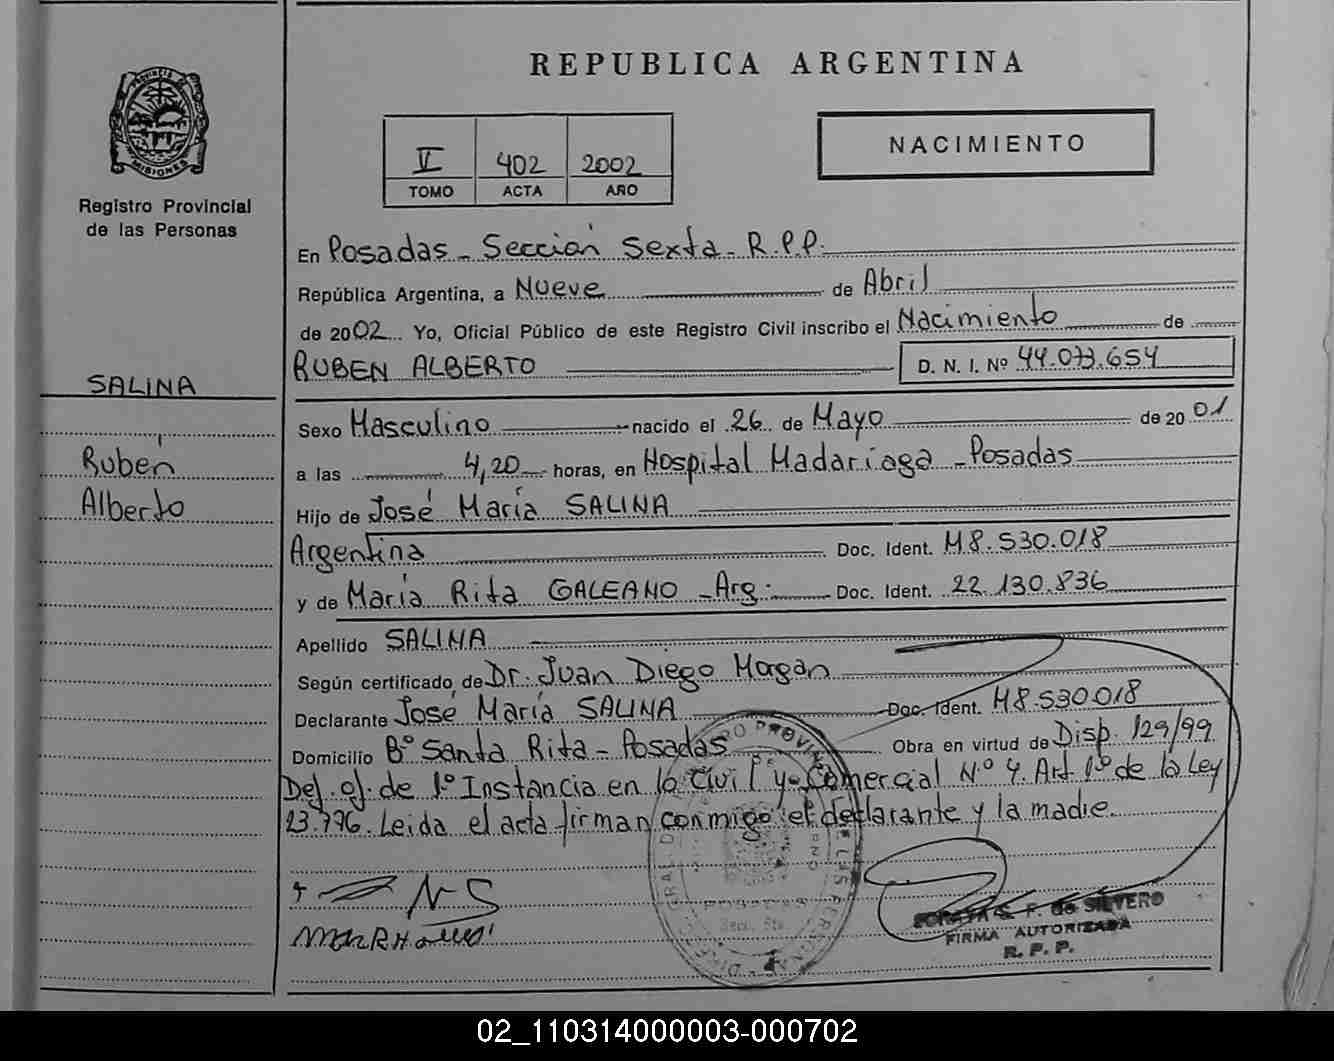 REPUBLICA ARGENTINA
PROVINCIA DE
MISIONES
Registro Provincial
de las Personas
V 402 2002
TOMO ACTA AÑO
NACIMIENTO
En Posadas - Sección Sexta - R.P.P.
República Argentina, a Nueve de Abril
de 2002 Yo, Oficial Público de este Registro Civil inscribo el Nacimiento de
RUBEN ALBERTO D. N. I. Nº 44.073.654
SALINA
Rubén
Alberto
Sexo Masculino nacido el 26 de Mayo de 2001
a las 4,20 horas, en Hospital Madariaga - Posadas
Hijo de José María SALINA
Argentina Doc. Ident. M8.530.018
y de María Rita GALEANO - Arg. Doc. Ident. 22.130.836
Apellido SALINA
Según certificado de Dr. Juan Diego Morgan
Declarante José María SALINA Doc. Ident. M8.530.018
Domicilio Bº Santa Rita - Posadas Obra en virtud de Disp. 129/99
Def. of. de 1º Instancia en lo Civil y Comercial Nº 4. Art 1º de la Ley
23.776. Leida el acta firman conmigo el declarante y la madre.
POSADAS
SORAYA S. F. de SILVERO
FIRMA AUTORIZADA
R. P. P.
02_110314000003-000702